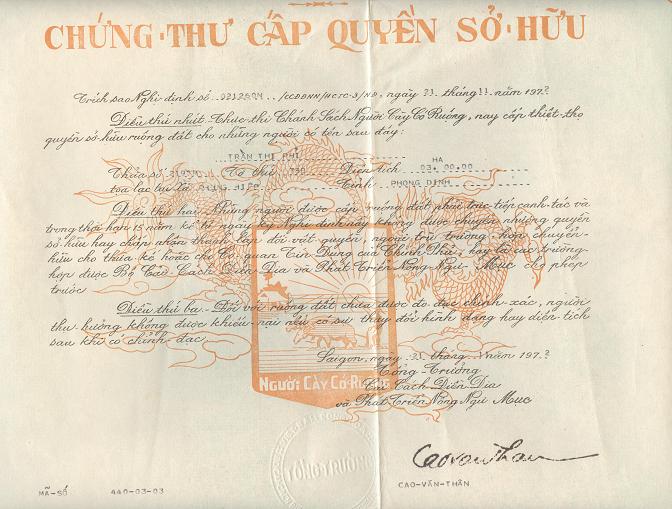 CHỨNG-THƯ CẤP QUYỀN SỞ-HỮU
Trích sao Nghị-định số /CCĐĐNN/HCTC-3/NĐ, ngày tháng 11 năm 197
Điều thứ nhứt-Thực-thi Chánh Sách Người Cày Có Ruộng, nay cấp thiệt-thọ
quyền sở-hữu ruộng đất cho những người có tên sau đây:
TRẦN THỊ PHI HA
Thửa số Tờ thứ Diện Tích 03.00.00
tọa lạc tại xã HIỆP Tỉnh PHONG DINH
Điều thứ hai-Những người được cấp ruộng đất phải trực tiếp canh-tác và
trong thời hạn 15 năm kể từ ngày ký Nghị định này không được chuyển nhượng quyền
sở-hữu hay chấp nhận thành lập đối vật-quyền, ngoại trừ trường-hợp chuyển-
hữu cho thừa kế hoặc cho Cơ-quan Tín Dụng của Chính Phủ, hay là các trường-
hợp được Bộ Cải Cách Điền Địa và Phát Triển Nông Ngư Mục cho phép
trước
Điều thứ ba-Đối với ruộng đất chưa được đo đạc chính-xác, người
thụ-hưởng không được khiếu-nại nếu có sự thay đổi hình dạng hay diện-tích
sau khi có chỉnh-đạc.
Saigon, ngày tháng năm 197
Tổng-Trưởng
Cải Cách Điền-Địa
và Phát-Triển Nông Ngư Mục
NGƯỜI CÀY CÓ RUỘNG
TỔNG TRƯỞNG
Caovanthan
MÃ-SỐ 440-03-03 CAO-VĂN-THÂN